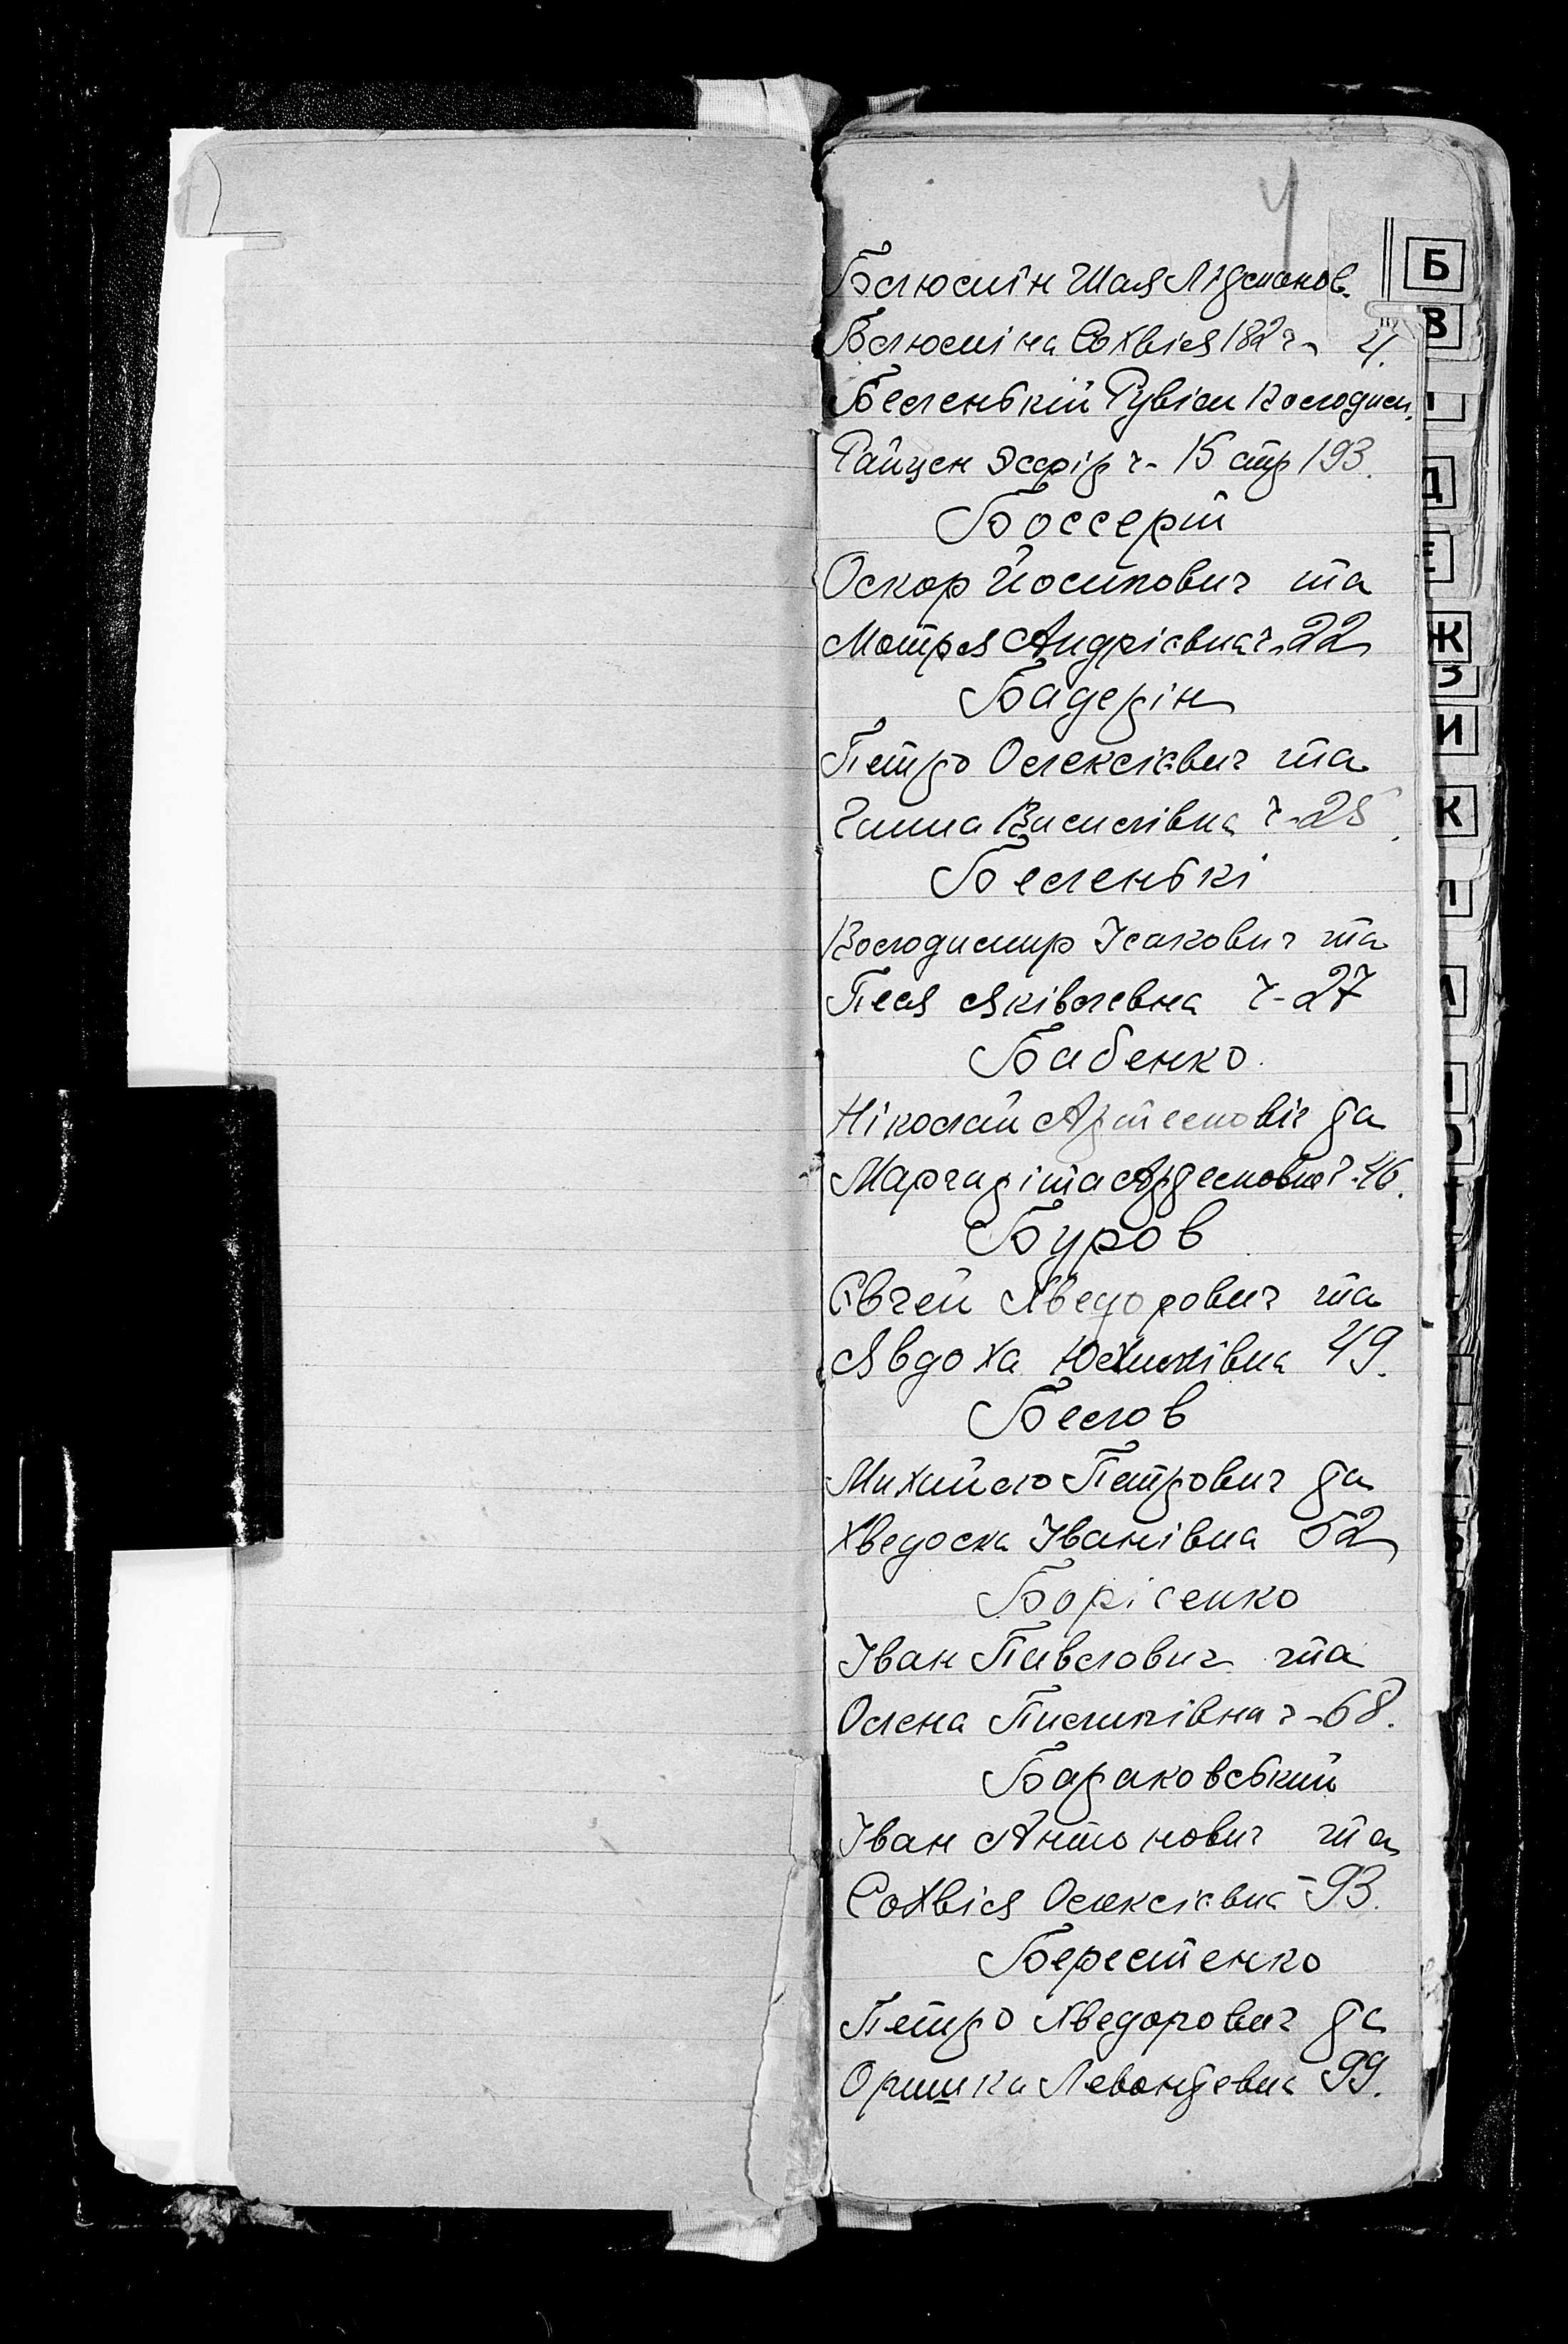 4
Б
Блюмін Шая
Блюміна Сохвія 182 ч- 4.
В
Беленькій Рувім Володим.
Райцен Эсфір ч- 15 стр 193.
Д
Боссерт
Е
Оскор Йосипович та
Мотря Андріевна ч. 22
Ж
Бадерін
З
И
Петро Олексієвич та
Ганна Василівна ч-25
К
Беленькі
Володимир Ісакович та
Песя Яківлевна ч-27
Бабенко.
Ніколай Артемовіч та
Маргаріта ч-46.
Буров
Євген Хведорович та
Явдоха Юхимівна 49.
Белов
Михайло Петрович та
Хведоска Іванівна 52
Борісенко
Іван Павлович та
Олена Пилипівна ч-68.
Бараковський
Іван Антонович та
Сохвія Олексієвна -93.
Берестенко
Петро Хведорович та
Оришка Левонтевна 99.